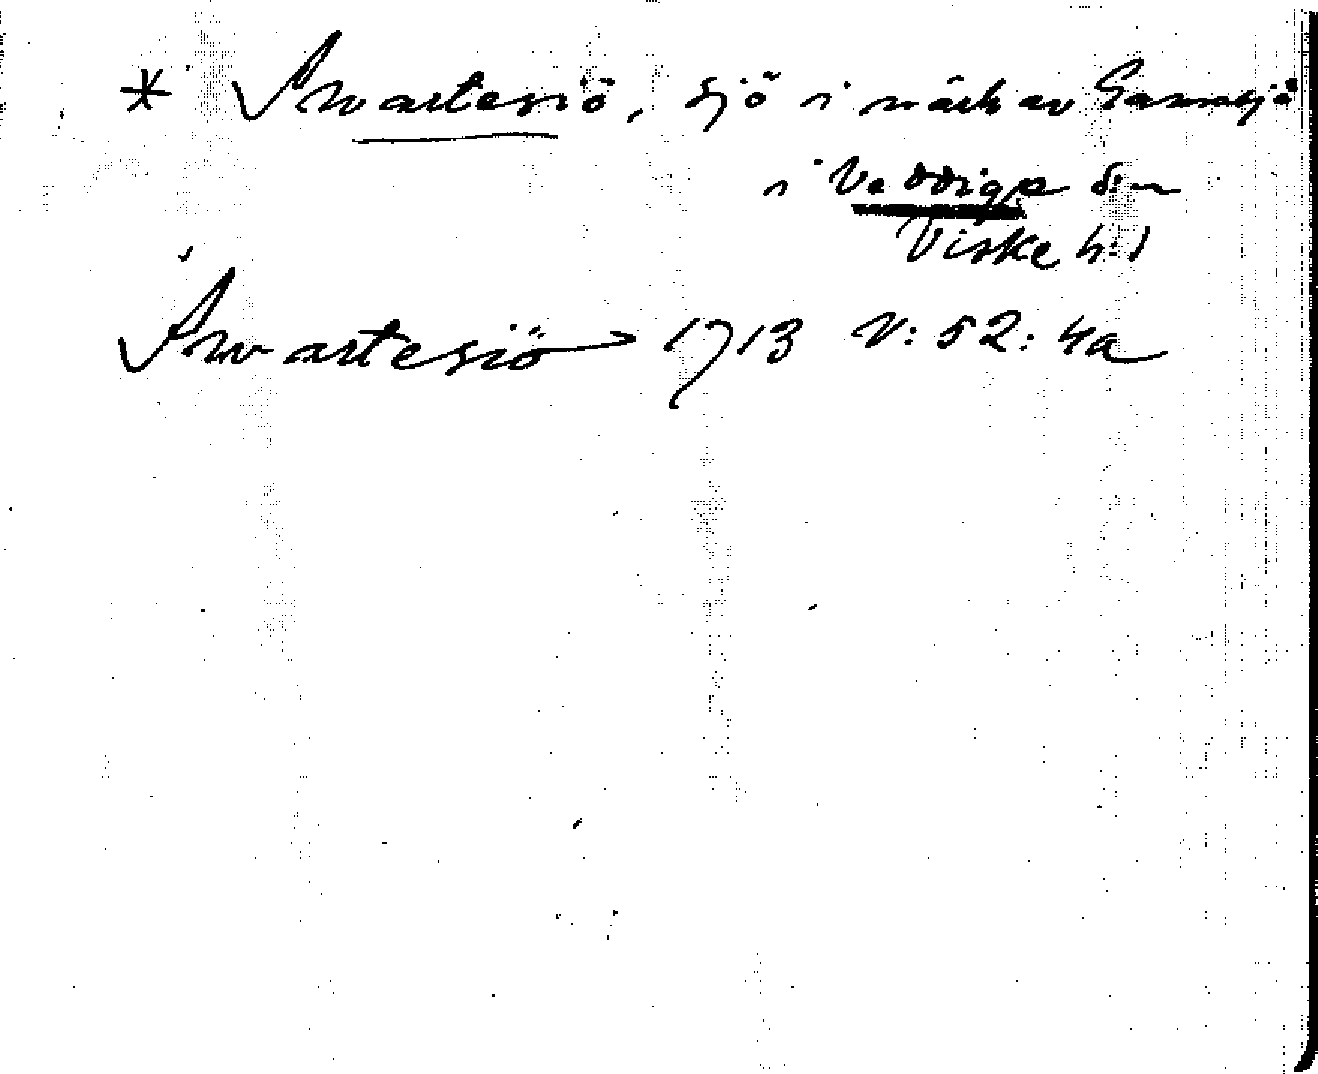 * Swartesiö, sjö i närh av Gamsjö
i Veddige sn
Viske hd
Swartesiö 1713 V:52:4a